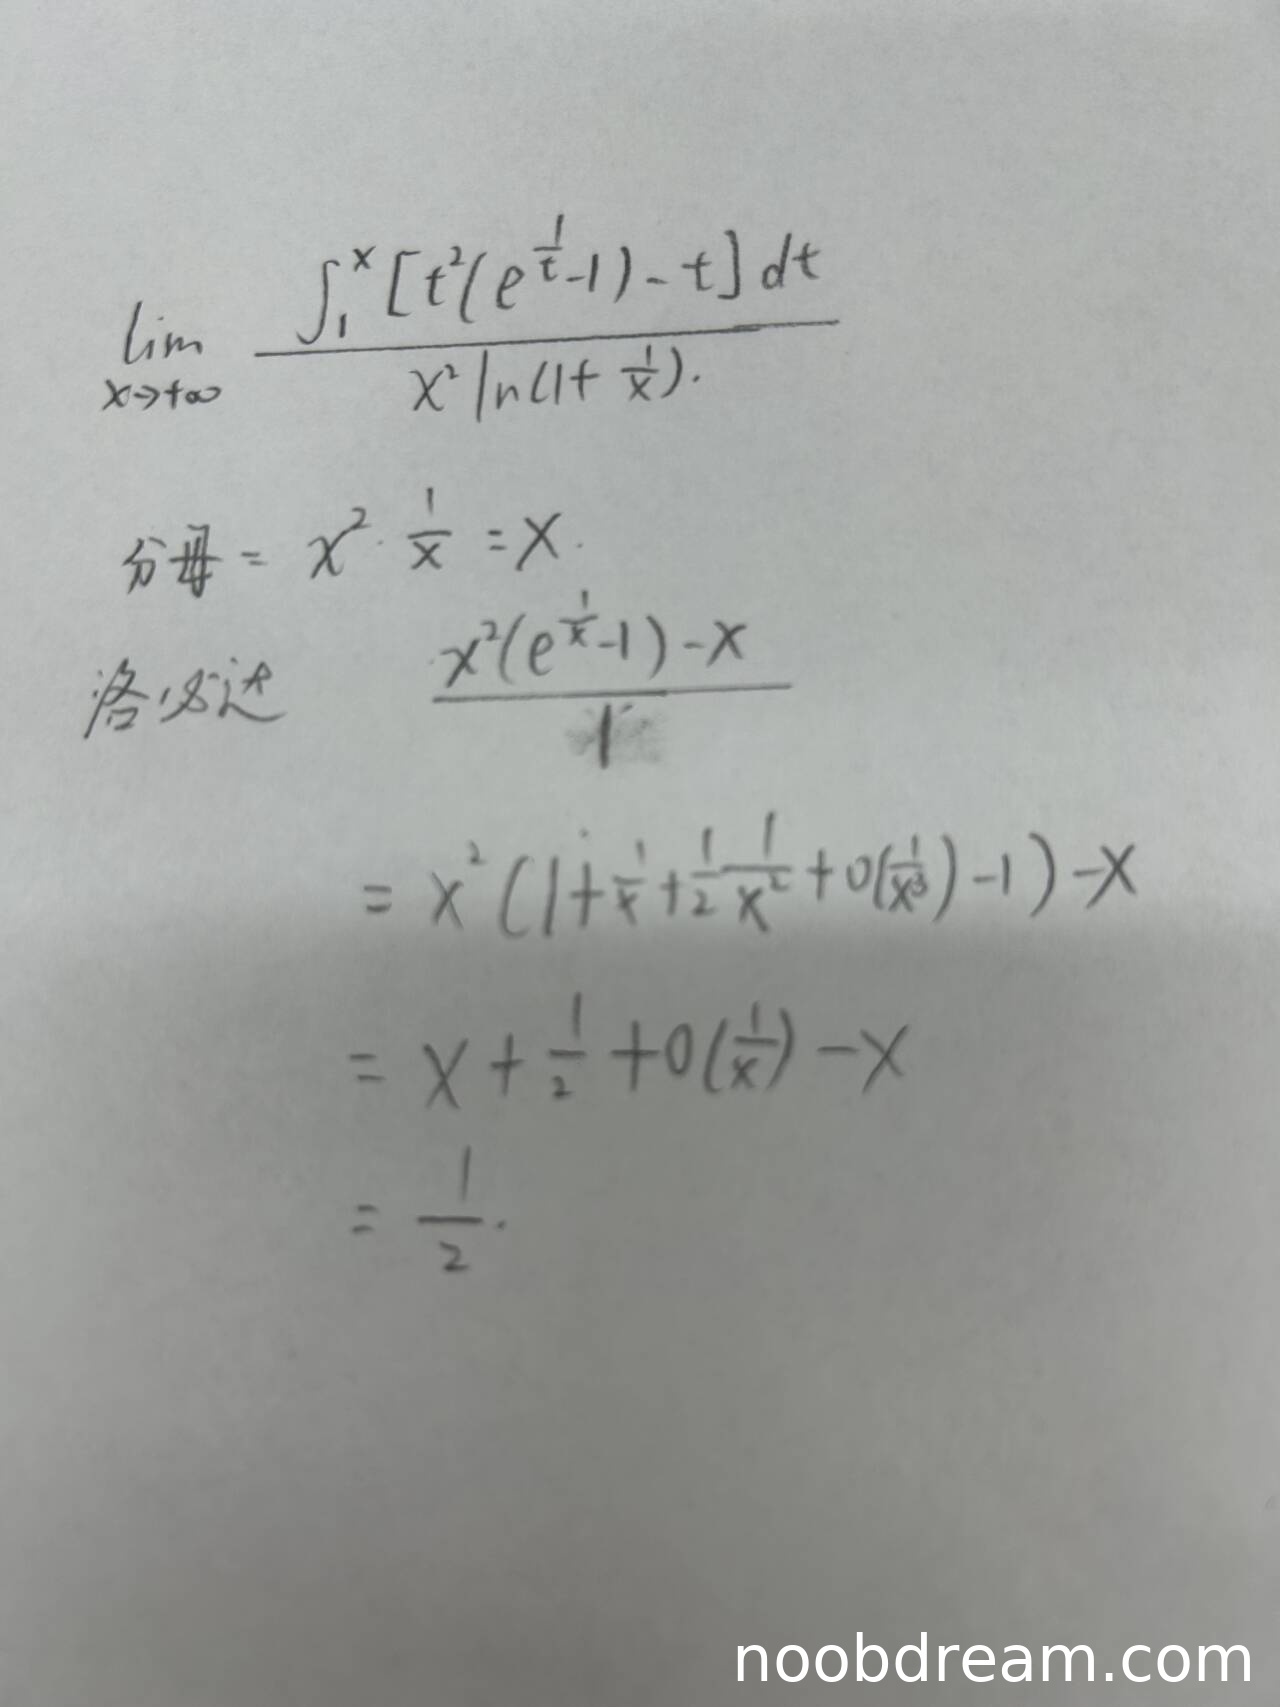 lim x→+∞ ∫₁ˣ [t²(e^(1/t)-1)-t]dt / x² ln(1+1/x).
分母 = x²·1/x = x.
洛必达 x²(e^(1/x)-1)-x / 1
= x²(1+1/x+1/2 1/x²+o(1/x³)-1)-x
= x+1/2+o(1/x)-x
= 1/2.
noobdream.com